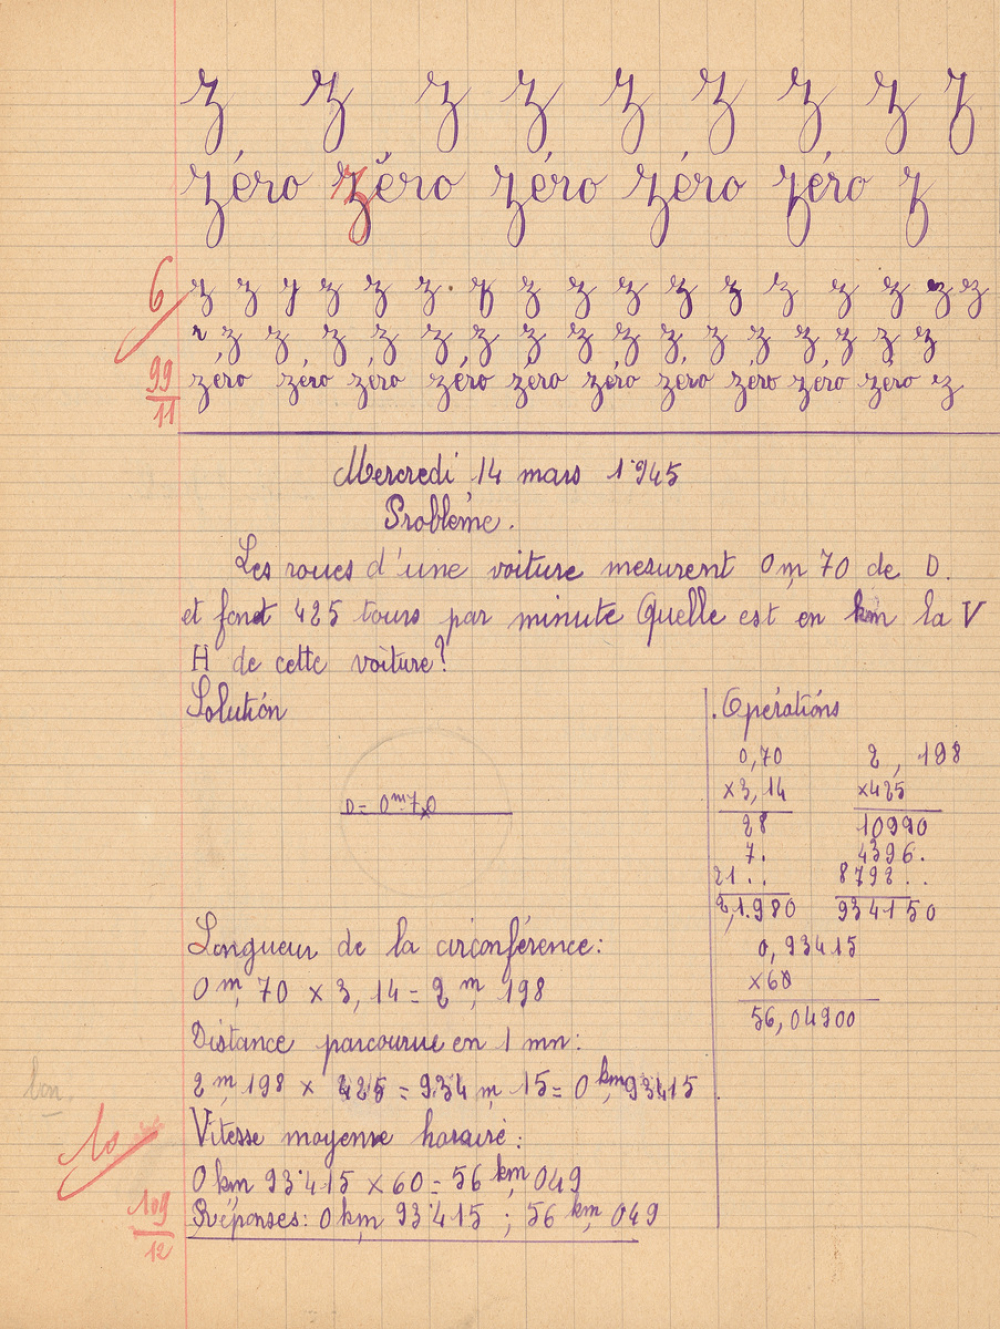 z z z z z z z z z
zéro zéro zéro zéro zéro z
6 z z z z z z z z z z z z z z z z z
z z z z z z z z z z z z z z z z
99/11 zéro zéro zéro zéro zéro zéro zéro zéro zéro zéro z
Mercredi 14 mars 1945
Problème.
Les roues d'une voiture mesurent 0m,70 de D.
et font 425 tours par minute Quelle est en km la V
H de cette voiture?
Solution
D = 0m,70
Longueur de la circonférence:
0m,70 × 3,14 = 2m,198
Distance parcourue en 1 mn:
2m,198 × 425 = 934m,15 = 0km,93415
bon
10
Vitesse moyenne horaire:
0km,93415 × 60 = 56km,049
Réponses: 0km,93415 ; 56km,049
109/12
Opérations
0,70
×3,14
28
7.
21..
2,1980
2,198
×425
10990
4396.
8792..
934150
0,93415
×60
56,04900